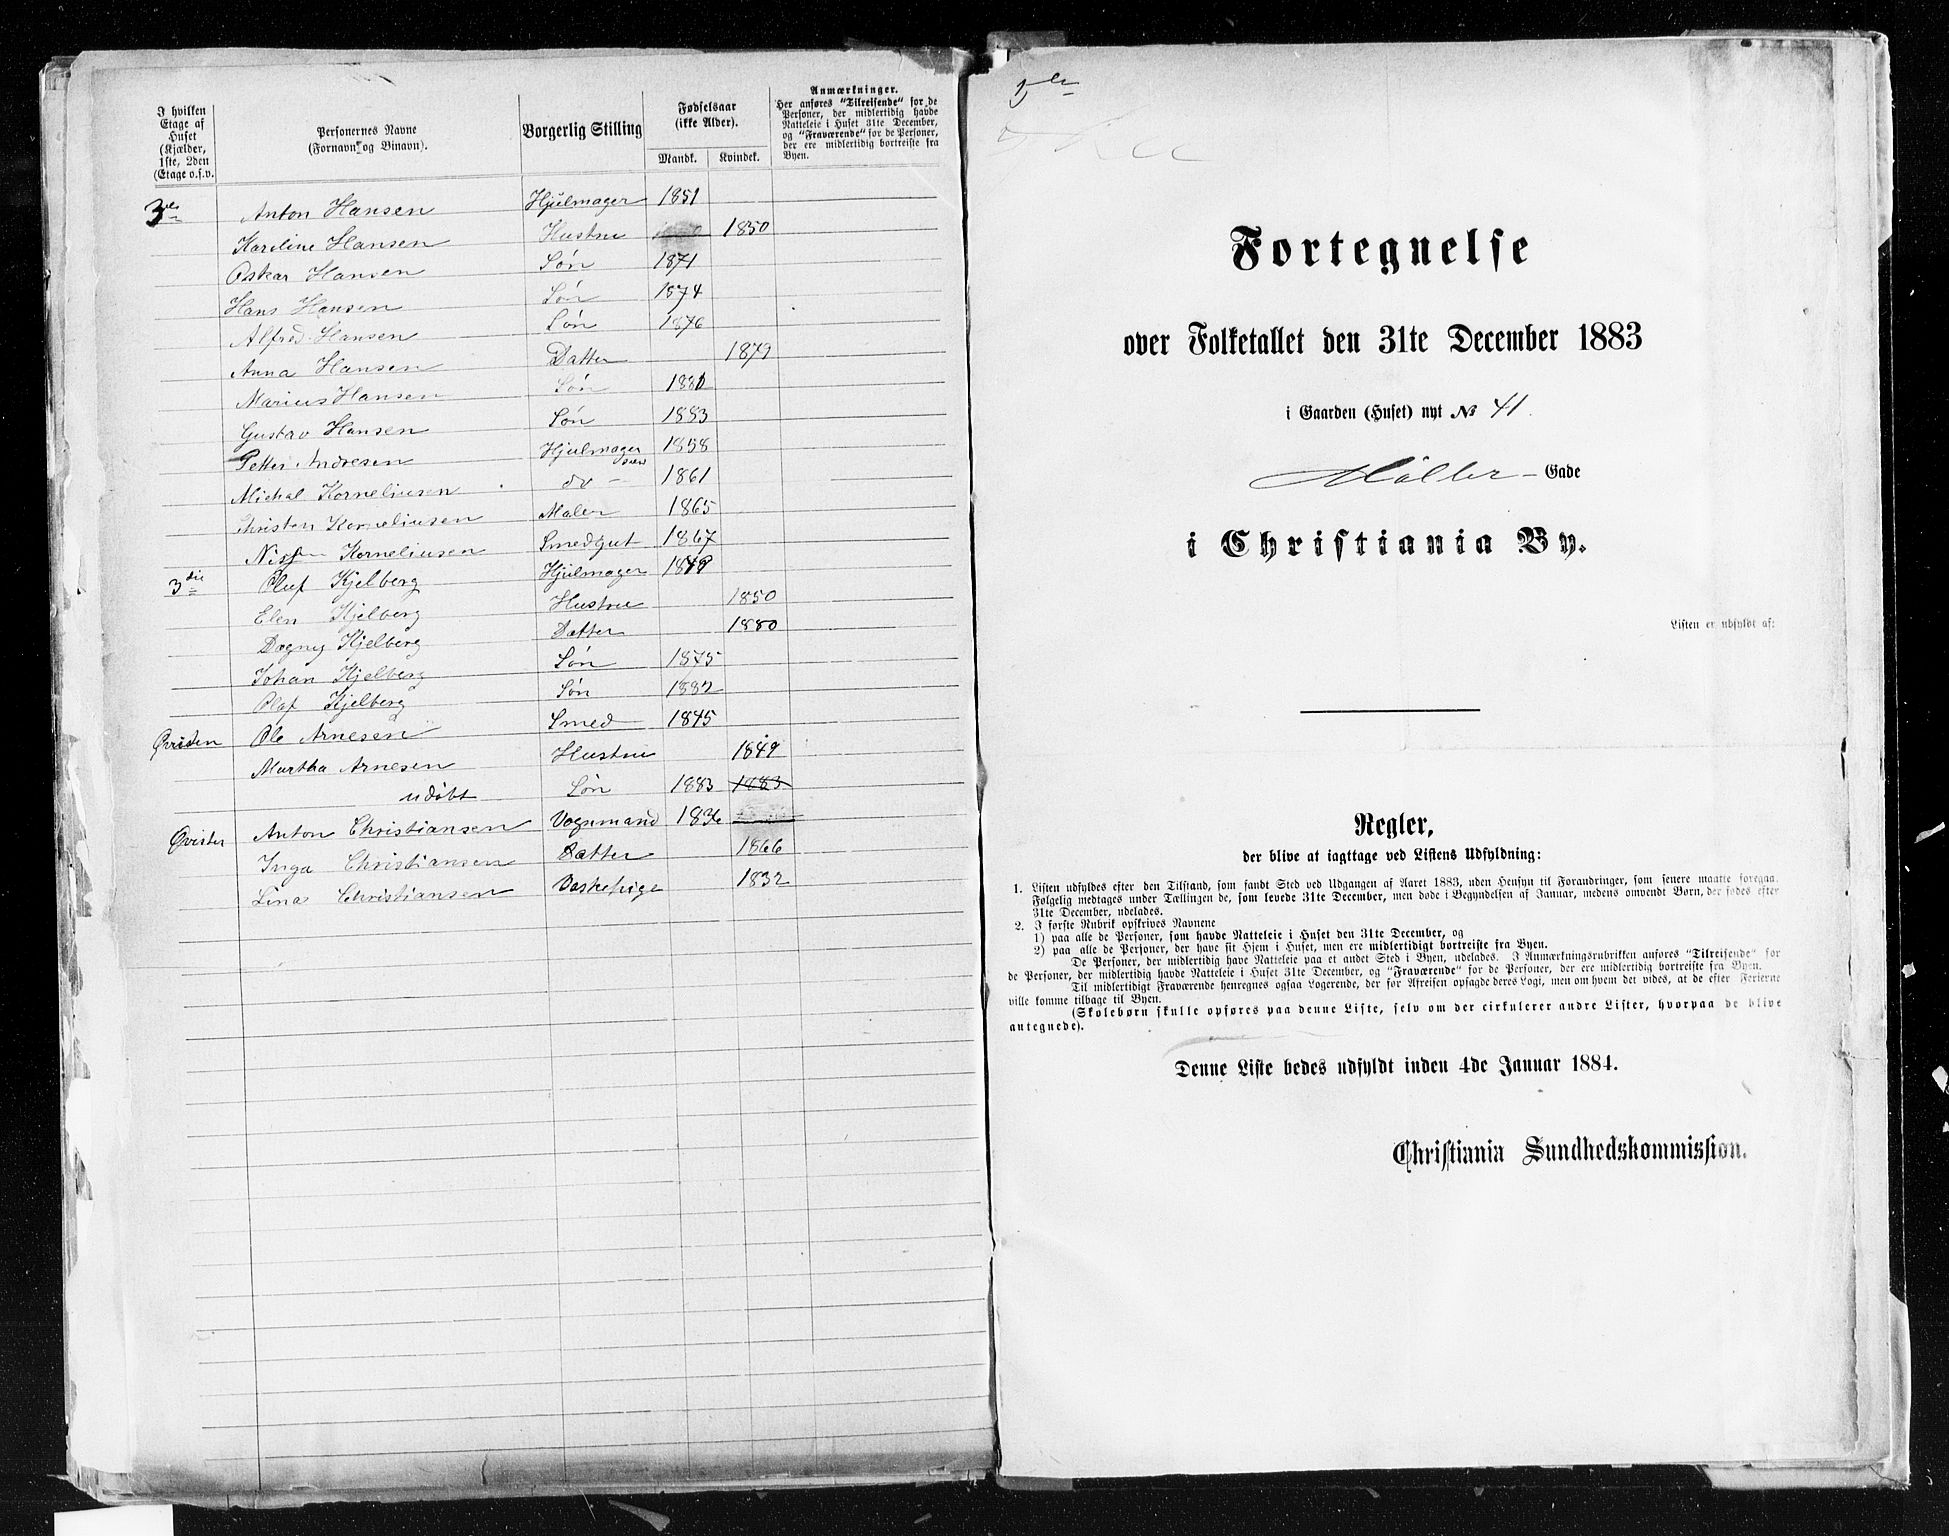 I hvilken
Etage af
Huset
(Kjælder,
1ste, 2den
Etage o.s.v.
Personernes Navne
(Fornavn og Binavn).
Borgerlig Stilling
Fødselsaar
(ikke Alder).
Mandk. Kvindek.
Anmærkninger.
Her anføres "Tilreisende" for de
Personer, der midlertidig havde
Natteleie i Huset 31te December,
og "Fraværende" for de Personer,
der ere midlertidig bortreiste fra
Byen.
3die Anton Hansen Hjulmager 1851
Kareline Hansen Hustru 1850
Oskar Hansen Søn 1871
Hans Hansen Søn 1874
Alfred Hansen Søn 1876
Anna Hansen Datter 1879
Marius Hansen Søn 1881
Gustav Hansen Søn 1883
Petter Andresen Hjulmager svend 1858
Michal Korneliusen do - 1861
Christen Korneliusen Maler 1865
Korneliusen Smedgut 1867
3die Oluf Kjelberg Hjulmager
Elen Kjelberg Hustru 1850
Dagny Kjelberg Datter 1880
Johan Kjelberg Søn 1875
Olaf Kjelberg Søn 1882
Qvisten Ole Arnesen Smed 1845
Martha Arnesen Hustru 1849
udøbt Søn 1883 1883
Qvisten Anton Christiansen Vognmand 1836
Inga Christiansen Datter 1866
Lina Christiansen Vaskepige 1832
Fortegnelse
over Folketallet den 31te December 1883
i Gaarden (Huset) nyt No 41.
Møller-Gade
i Christiania By.
Listen er udfyldt af:
Regler,
der blive at iagttage ved Listens Udfyldning:
1. Listen udfyldes efter den Tilstand, som fandt Sted ved Udgangen af Aaret 1883, uden Hensyn til Forandringer, som senere maatte foregaa.
Følgelig medtages under Tællingen de, som levede 31te December, men døde i Begyndelsen af Januar, medens omvendt Børn, der fødes efter
31te December, udelades.
2. I første Rubrik opskrives Navnene
1) paa alle de Personer, som havde Natteleie i Huset den 31te December, og
2) paa alle de Personer, der have sit Hjem i Huset, men ere midlertidigt bortreiste fra Byen.
De Personer, der midlertidig have Natteleie paa et andet Sted i Byen, udelades. I Anmærkningsrubrikken anføres "Tilreisende" for
de Personer, der midlertidig havde Natteleie i Huset 31te December, og "Fraværende" for de Personer, der ere midlertidig bortreiste fra Byen.
Til midlertidigt Fraværende henregnes ogsaa Logerende, der før Afreisen opsagde deres Logi, men om hvem det vides, at de efter Ferierne
ville komme tilbage til Byen.
(Skolebørn skulle opføres paa denne Liste, selv om der cirkulerer andre Lister, hvorpaa de blive
antegnede).
Denne Liste bedes udfyldt inden 4de Januar 1884.
Christiania Sundhedskommission.